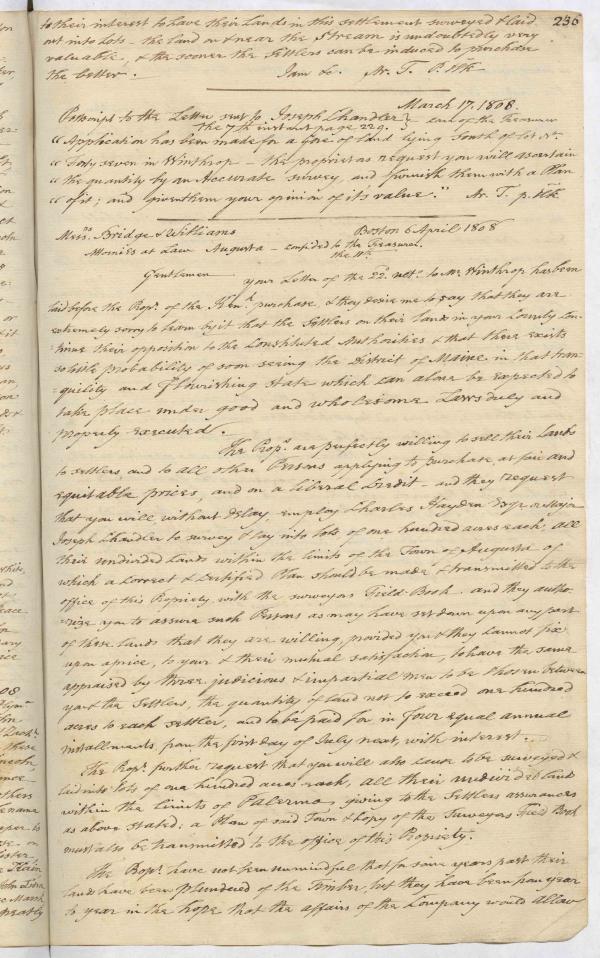 236
to their interest to have their Lands in this Settlement surveyed & laid
out into Lots – the land on & near the Stream is undoubtedly very
valuable, & the sooner the Settlers can be induced to purchase
the better. I am &c. Ar. T. P. Clk
March 17. 1808.
Postscript to the Letter sent to Joseph Chandler
the 7th instant page 229.
"Application has been made for a Gore of Land lying South of Lot No.
"Forty seven in Winthrop – the proprietors request you will ascertain
"the quantity by an Accurate survey, and furnish them with a Plan
"of it; and give them your opinion of it's value." Ar. T. p. Clk
Messrs. Bridge & Williams Boston 6 April 1808
Attornies at Law Augusta – confided to the Treasurer
Gentlemen
your Letter of the 22d. ulto. to Mr. Winthrop has been
laid before the Props. of the Kennk. purchase, & they desire me to say that they are
extremely sorry to learn by it that the Settlers on their lands in your County con-
-tinue their opposition to the Constituted Authorities & that there exists
so little probability of soon seeing the District of Maine in that tran-
-quility and flourishing state which can alone be expected to
take place under good and wholesome Laws duly and
properly executed.
The Props. are perfectly willing to sell their Lands
to settlers, and to all other Persons applying to purchase, at fair and
equitable prices, and on a liberal Credit – and they request
that you will without delay, employ Charles Hayden Esqr. or Major
Joseph Chandler to survey & lay into lots of one hundred acres each, all
their undivided Lands within the limits of the Town of Augusta – of
which a correct & Certified Plan should be made & transmitted to the
office of this Propriety with the surveyors Field Book. and they autho-
-rize you to assure such Persons as may have set down upon any part
of these Lands that they are willing, provided you & they cannot fix
upon a price, to your & their mutual satisfaction, to have the same
appraised by three judicious & impartial men to be chosen between
you & the Settlers, the quantity of land not to exceed one hundred
acres to each settler, and to be paid for in four equal annual
installments, from the first day of July next, with interest.
The Props. further request that you will also cause to be surveyed &
laid into lots of one hundred acres each, all their undivided land
within the limits of Palermo, giving to the Settlers assurances
as above stated; a Plan of said Town & Copy of the Surveyors Field Book
must also be transmitted to the office of this Propriety.
The Props. have not been unmindful that for some years past their
lands have been plundered of the Timber, but they have been from year
to year in the hope that the affairs of the Company would allow